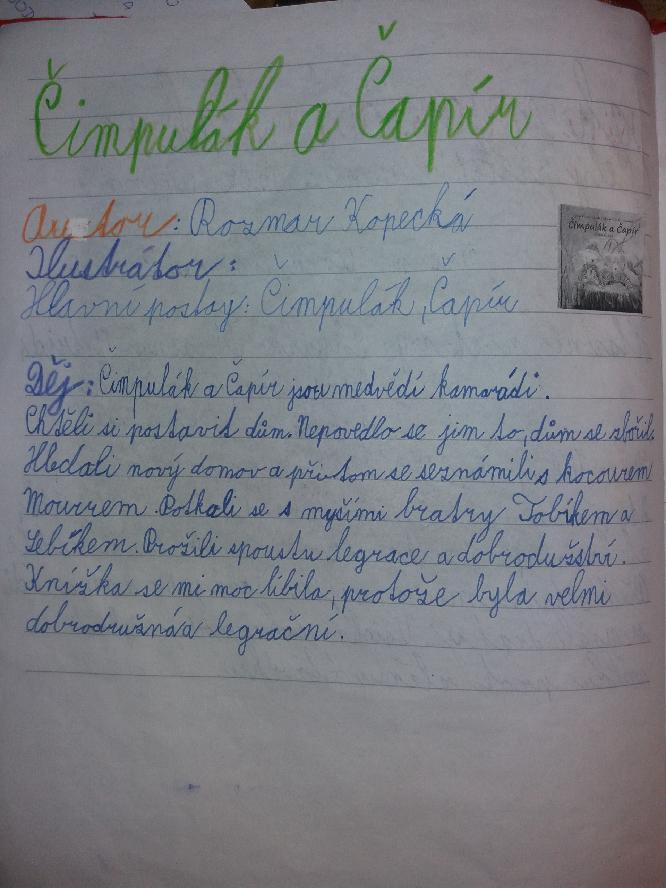 Čimpulák a Čapír
Autor: Rozmar Kopecká
Ilustrátor:
Hlavní postay: Čimpulák, Čapír
Čimpulák a Čapír
Děj: Čimpulák a Čapír jsou medvědí kamarádi.
Chtěli si postavit dům. Nepovedlo se jim to, dům se zbořil.
Hledali nový domov a při tom se seznámili s kocourem
Mourrem. Potkali se s myšími bratry Tobíkem a
Sebíkem. Prožili spoustu legrace a dobrodužství.
Knížka se mi moc líbila, protože byla velmi
dobrodružná a legrační.